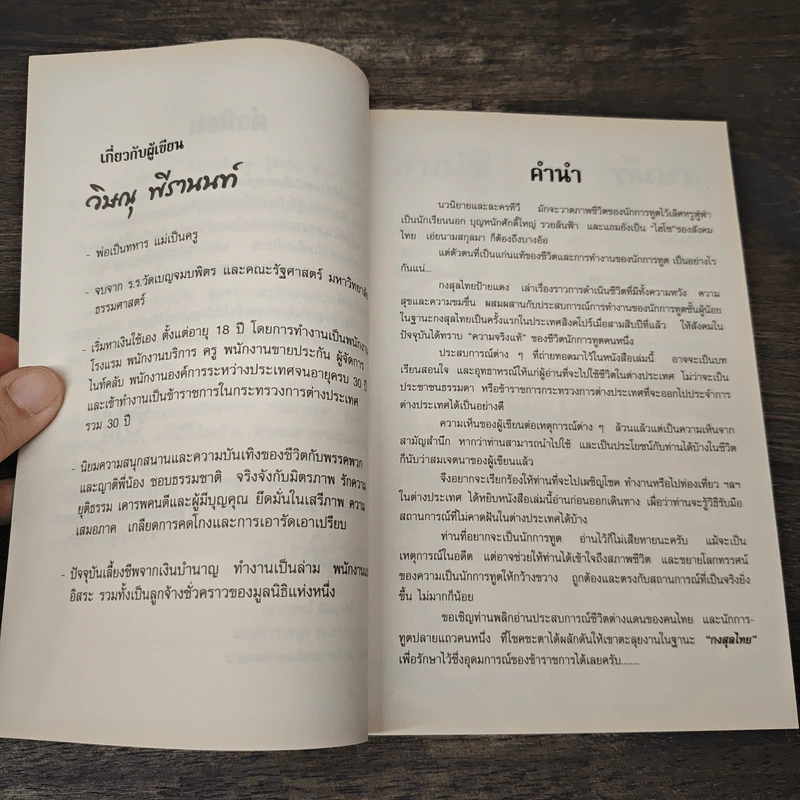 เกี่ยวกับผู้เขียน
วิษณุ พีรานนท์
- พ่อเป็นทหาร แม่เป็นครู
- จบจาก ร.ร.วัดเบญจมบพิตร และคณะรัฐศาสตร์ มหาวิทยาลัย
ธรรมศาสตร์
- เริ่มหาเงินใช้เอง ตั้งแต่อายุ 18 ปี โดยการทำงานเป็นพนักงาน
โรงแรม พนักงานบริการ ครู พนักงานขายประกัน ผู้จัดการ
ไนท์คลับ พนักงานองค์การระหว่างประเทศจนอายุครบ 30 ปี
และเข้าทำงานเป็นข้าราชการในกระทรวงการต่างประเทศ
รวม 30 ปี
- นิยมความสนุกสนานและความบันเทิงของชีวิตกับพรรคพวก
และญาติพี่น้อง ชอบธรรมชาติ จริงจังกับมิตรภาพ รักความ
ยุติธรรม เคารพคนดีและผู้มีบุญคุณ ยึดมั่นในเสรีภาพ ความ
เสมอภาค เกลียดการคดโกงและการเอารัดเอาเปรียบ
- ปัจจุบันเลี้ยงชีพจากเงินบำนาญ ทำงานเป็นล่าม พนักงานแปล
อิสระ รวมทั้งเป็นลูกจ้างชั่วคราวของมูลนิธิแห่งหนึ่ง
คำนำ
นวนิยายและละครทีวี มักจะวาดภาพชีวิตของนักการทูตไว้เลิศหรูฟู่ฟ่า
เป็นนักเรียนนอก บุญหนักศักดิ์ใหญ่ รวยล้นฟ้า และแถมยังเป็น "ไฮโซ"ของสังคม
ไทย เอ่ยนามสกุลมา ก็ต้องถึงบางอ้อ
แต่ตัวตนที่เป็นแก่นแท้ของชีวิตและการทำงานของนักการทูต เป็นอย่างไร
กันแน่...
กงสุลไทยป้ายแดง เล่าเรื่องราวการดำเนินชีวิตที่มีทั้งความหวัง ความ
สุขและความขมขื่น ผสมผสานกับประสบการณ์การทำงานของนักการทูตชั้นผู้น้อย
ในฐานะกงสุลไทยเป็นครั้งแรกในประเทศสิงคโปร์เมื่อสามสิบปีที่แล้ว ให้สังคมใน
ปัจจุบันได้ทราบ "ความจริงแท้" ของชีวิตนักการทูตคนหนึ่ง
ประสบการณ์ต่าง ๆ ที่ถ่ายทอดมาไว้ในหนังสือเล่มนี้ อาจจะเป็นบท
เรียนสอนใจ และอุทาหรณ์ให้แก่ผู้อ่านที่จะไปใช้ชีวิตในต่างประเทศ ไม่ว่าจะเป็น
ประชาชนธรรมดา หรือข้าราชการกระทรวงการต่างประเทศที่จะออกไปประจำการ
ต่างประเทศได้เป็นอย่างดี
ความเห็นของผู้เขียนต่อเหตุการณ์ต่าง ๆ ล้วนแล้วแต่เป็นความเห็นจาก
สามัญสำนึก หากว่าท่านสามารถนำไปใช้ และเป็นประโยชน์กับท่านได้บ้างในชีวิต
ก็นับว่าสมเจตนาของผู้เขียนแล้ว
จึงอยากจะเรียกร้องให้ท่านที่จะไปเผชิญโชค ทำงานหรือไปท่องเที่ยว ฯลฯ
ในต่างประเทศ ได้หยิบหนังสือเล่มนี้อ่านก่อนออกเดินทาง เผื่อว่าท่านจะรู้วิธีรับมือ
สถานการณ์ที่ไม่คาดฝันในต่างประเทศได้บ้าง
ท่านที่อยากจะเป็นนักการทูต อ่านไว้ก็ไม่เสียหายนะครับ แม้จะเป็น
เหตุการณ์ในอดีต แต่อาจช่วยให้ท่านได้เข้าใจถึงสภาพชีวิต และขยายโลกทรรศน์
ของความเป็นนักการทูตให้กว้างขวาง ถูกต้องและตรงกับสถานการณ์ที่เป็นจริงยิ่ง
ขึ้น ไม่มากก็น้อย
ขอเชิญท่านพลิกอ่านประสบการณ์ชีวิตต่างแดนของคนไทย และนักการ-
ทูตปลายแถวคนหนึ่ง ที่โชคชะตาได้ผลักดันให้เขาตะลุยงานในฐานะ "กงสุลไทย"
เพื่อรักษาไว้ซึ่งอุดมการณ์ของข้าราชการได้เลยครับ........